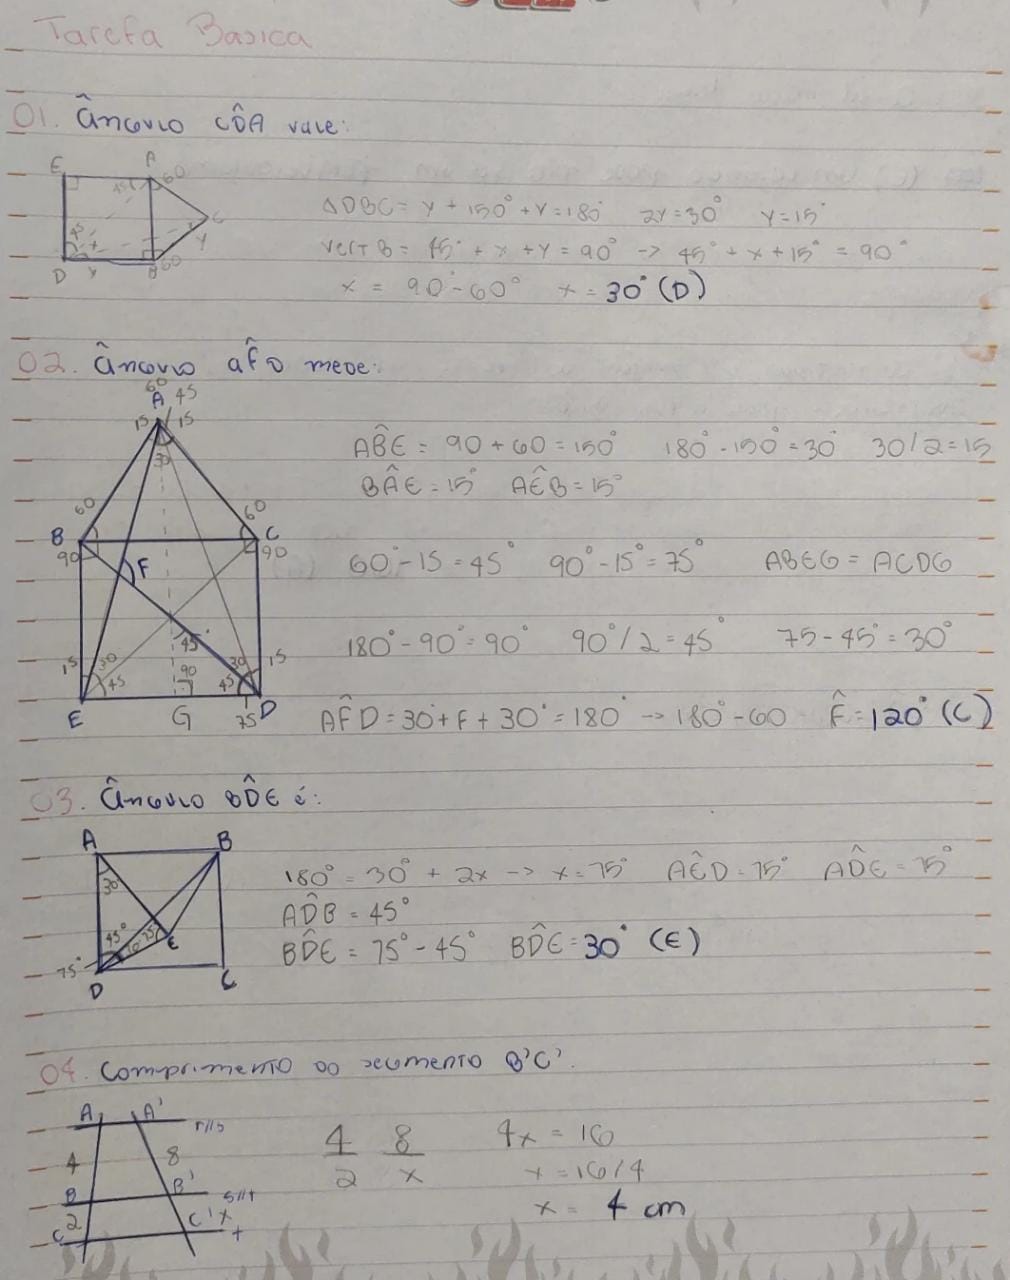 Tarefa Basica
01. Ângulo CD̂A vale:
E A 60
45
C
45 x y
D y B 60
ΔDBC = y + 150° + y = 180° 2y = 30° y = 15°
Vert B = 45° + x + y = 90° -> 45° + x + 15° = 90°
x = 90° - 60° x = 30° (D)
02. Ângulo AF̂D mede:
60
A 45
15 15
30
60 60
B C
90 90
F
45°
15 30 90 30 15
45 45
E G 75 D
AB̂E = 90 + 60 = 150° 180° - 150° = 30° 30/2 = 15
BÂE = 15° AÊB = 15°
60° - 15 = 45° 90° - 15° = 75° ABEG = ACDG
180° - 90° = 90° 90°/2 = 45° 75 - 45° = 30°
AF̂D = 30° + F + 30° = 180° -> 180° - 60 F̂ = 120° (C)
03. Ângulo BD̂E é:
A B
30°
45° 75°
E
75°
D C
180° = 30° + 2x -> x = 75° AÊD = 75° AD̂E = 75°
AD̂B = 45°
BD̂E = 75° - 45° BD̂E = 30° (E)
04. Comprimento do segmento B'C'.
A A' r//s
4 8
B B' s//t
2 C' x
C t
4 8 4x = 16
2 x x = 16/4
x = 4 cm